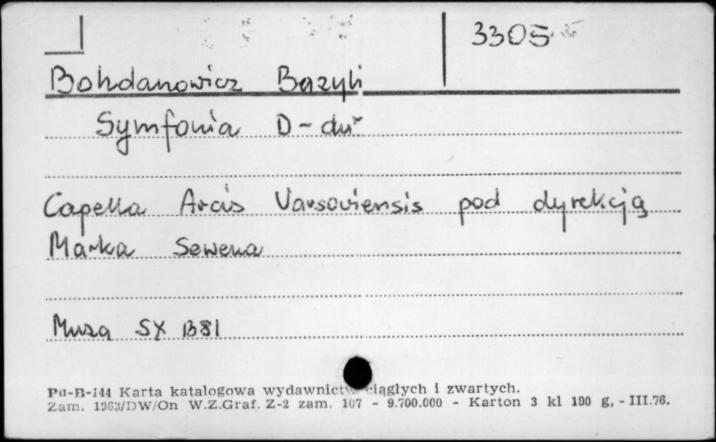 3305
Bohdanowicz Bazyli
Symfonia D-dur
Capella Arcis Varsoviensis pod dyrekcją
Marka Sewena
Muza SX 1381
Pu-B-144 Karta katalogowa wydawnictw ciągłych i zwartych.
Zam. 1963/DW/On W.Z.Graf. Z-2 zam. 107 - 9.700.000 - Karton 3 kl 190 g, - III.76.